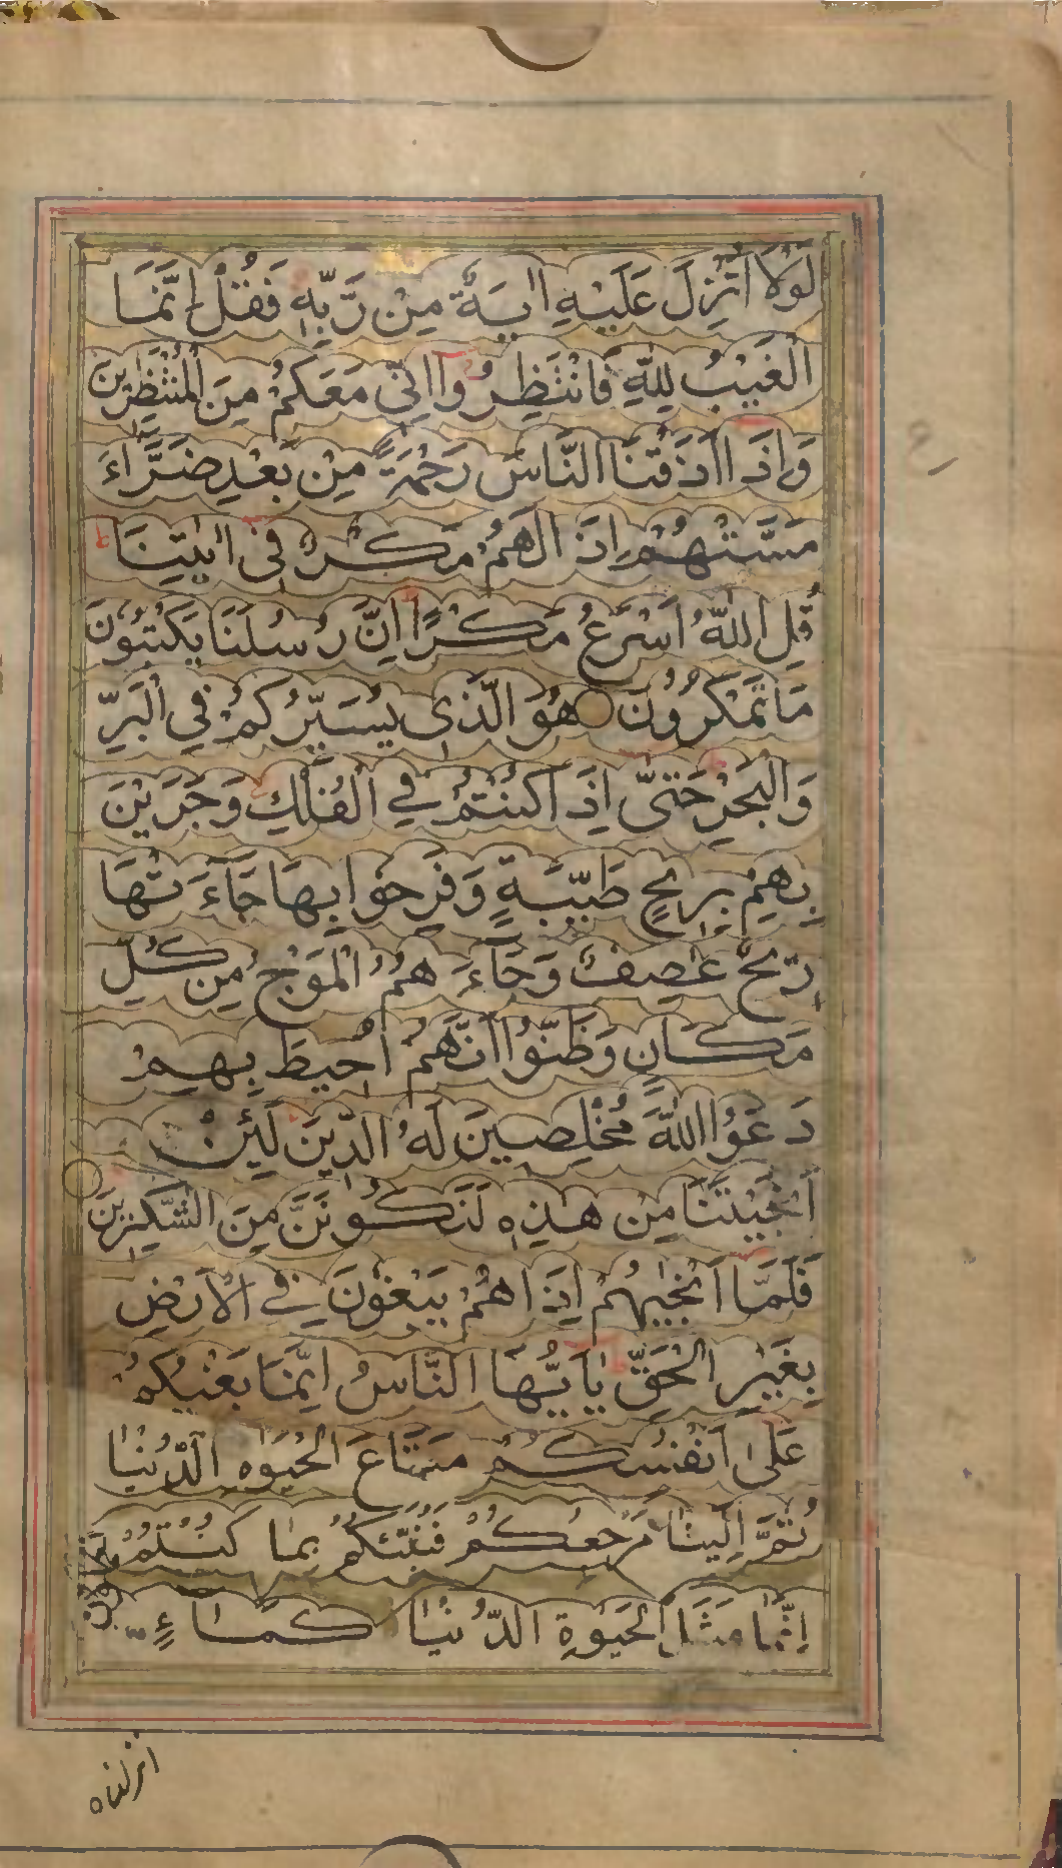 لَوْلَا اُنْزِلَ عَلَيْهِ اٰيَةٌ مِنْ رَّبِّهٖ فَقُلْ اِنَّمَا
الْغَيْبُ لِلّٰهِ فَانْتَظِرُوْا اِنِّيْ مَعَكُمْ مِنَ الْمُنْتَظِرِيْنَ
وَاِذَا اَذَقْنَا النَّاسَ رَحْمَةً مِنْ بَعْدِ ضَرَّاءَ
مَسَّتْهُمْ اِذَا لَهُمْ مَكْرٌ فِيْ اٰيٰتِنَا
قُلِ اللّٰهُ اَسْرَعُ مَكْرًا اِنَّ رُسُلَنَا يَكْتُبُوْنَ
مَا تَمْكُرُوْنَ هُوَ الَّذِيْ يُسَيِّرُكُمْ فِي الْبَرِّ
وَالْبَحْرِ حَتّٰى اِذَا كُنْتُمْ فِي الْفُلْكِ وَجَرَيْنَ
بِهِمْ بِرِيْحٍ طَيِّبَةٍ وَفَرِحُوْا بِهَا جَآءَتْهَا
رِيْحٌ عَاصِفٌ وَجَآءَهُمُ الْمَوْجُ مِنْ كُلِّ
مَكَانٍ وَظَنُّوْا اَنَّهُمْ اُحِيْطَ بِهِمْ
دَعَوُا اللّٰهَ مُخْلِصِيْنَ لَهُ الدِّيْنَ لَئِنْ
اَنْجَيْتَنَا مِنْ هٰذِهٖ لَنَكُوْنَنَّ مِنَ الشّٰكِرِيْنَ
فَلَمَّا اَنْجٰيهُمْ اِذَا هُمْ يَبْغُوْنَ فِي الْاَرْضِ
بِغَيْرِ الْحَقِّ يٰاَيُّهَا النَّاسُ اِنَّمَا بَغْيُكُمْ
عَلٰى اَنْفُسِكُمْ مَتَاعَ الْحَيٰوةِ الدُّنْيَا
ثُمَّ اِلَيْنَا مَرْجِعُكُمْ فَنُنَبِّئُكُمْ بِمَا كُنْتُمْ
اِنَّمَا مَثَلُ الْحَيٰوةِ الدُّنْيَا كَمَآءٍ
انزلناه